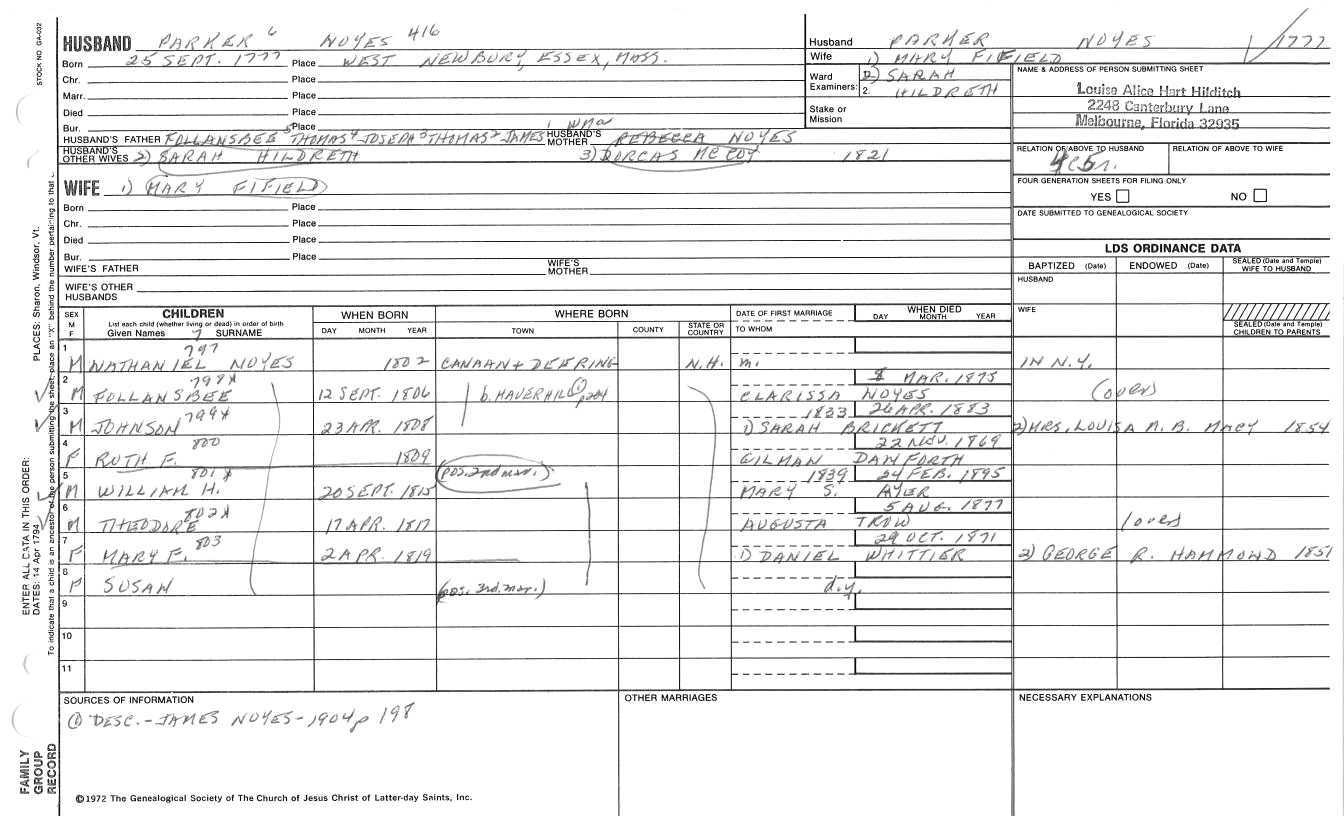 STOCK NO. GA-032
HUSBAND PARKER 6 NOYES 416
Born 25 SEPT. 1777 Place WEST NEWBURY, ESSEX, MASS.
Chr. Place
Marr. Place
Died Place
Bur. Place
HUSBAND'S FATHER FOLLANSBEE 5 THOMAS 4 JOSEPH 3 THOMAS 2 JAMES 1 HUSBAND'S MOTHER REBECCA NOYES
HUSBAND'S OTHER WIVES 2) SARAH HILDRETH 3) DORCAS McCOY 1821
Husband PARKER NOYES 1777
Wife 1) MARY FIFIELD
2) SARAH HILDRETH
Ward
Examiners: 1.
2.
Stake or
Mission
NAME & ADDRESS OF PERSON SUBMITTING SHEET
Louise Alice Hart Hilditch
2248 Canterbury Lane
Melbourne, Florida 32935
RELATION OF ABOVE TO HUSBAND RELATION OF ABOVE TO WIFE
FOUR GENERATION SHEETS FOR FILING ONLY
YES NO
DATE SUBMITTED TO GENEALOGICAL SOCIETY
WIFE 1) MARY FIFIELD
Born Place
Chr. Place
Died Place
Bur. Place
WIFE'S FATHER WIFE'S MOTHER
WIFE'S OTHER HUSBANDS
LDS ORDINANCE DATA
BAPTIZED (Date) ENDOWED (Date) SEALED (Date and Temple) WIFE TO HUSBAND
HUSBAND
WIFE
SEALED (Date and Temple) CHILDREN TO PARENTS
SEX M F CHILDREN List each child (whether living or dead) in order of birth Given Names 7 SURNAME
WHEN BORN DAY MONTH YEAR
WHERE BORN TOWN COUNTY STATE OR COUNTRY
DATE OF FIRST MARRIAGE TO WHOM
WHEN DIED DAY MONTH YEAR
1 M NATHANIEL NOYES 797 1802 CANAAN + DEERING N.H. m. IN N.Y.
2 M FOLLANSBEE 798x 12 SEPT. 1806 b. HAVERHILL 1 p204 CLARISSA NOYES MAR. 1875 (over)
3 M JOHNSON 799x 23 APR. 1808 1833 1) SARAH BRICKETT 26 APR. 1883 2) MRS. LOUISA N. B. MACY 1854
4 F RUTH F. 800 1809 GILMAN DANFORTH 22 NOV. 1869
5 M WILLIAM H. 801x 20 SEPT. 1815 (pos. 2nd mar.) 1839 MARY S. AYER 24 FEB. 1895
6 M THEODORE 802x 17 APR. 1817 AUGUSTA TROW 5 AUG. 1877 (over)
7 F MARY F. 803 2 APR. 1819 1) DANIEL WHITTIER 29 OCT. 1871 2) GEORGE R. HAMMOND 1851
8 F SUSAN (pos. 3rd. mar.) d.y.
9
10
11
SOURCES OF INFORMATION
1 DESC. - JAMES NOYES - 1904 p 198
OTHER MARRIAGES
NECESSARY EXPLANATIONS
©1972 The Genealogical Society of The Church of Jesus Christ of Latter-day Saints, Inc.
ENTER ALL DATA IN THIS ORDER:
DATES: 14 Apr 1794 PLACES: Sharon, Windsor, Vt.
To indicate that a child is an ancestor of the person submitting the sheet, place an "X" behind the number pertaining to that
FAMILY
GROUP
RECORD